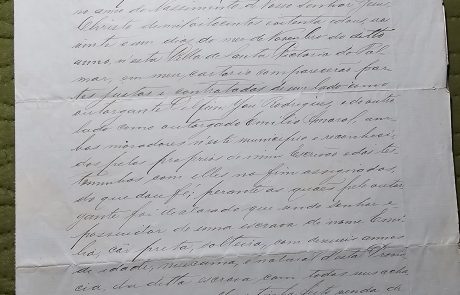 no anno do Nascimento de Nosso Senhor Jesus
Christo de mil oito centos e setenta e dous, ao
vinte e um dias do mez de Fevereiro do dito
anno, n'esta Villa de Santa Victoria do Pal-
mar, em meu cartorio compareceram par-
tes justas e contratadas de um lado como
outorgante Delfim José Rodrigues e de outro
lado como outorgado Emilio Amaral, am-
bos moradores n'este municipio e reconheci-
dos pelos proprios de mim Escrivão e das tes-
temunhas com elles no fim assignadas,
do que dou fé; perante as quaes pelo outor-
gante foi declarado, que sendo senhor e
possuidor de uma escrava de nome
côr preta, solteira, com dezeseis annos
de idade, natural d'esta Provin-
cia, da dita escrava com todos os seus acha-
venda de